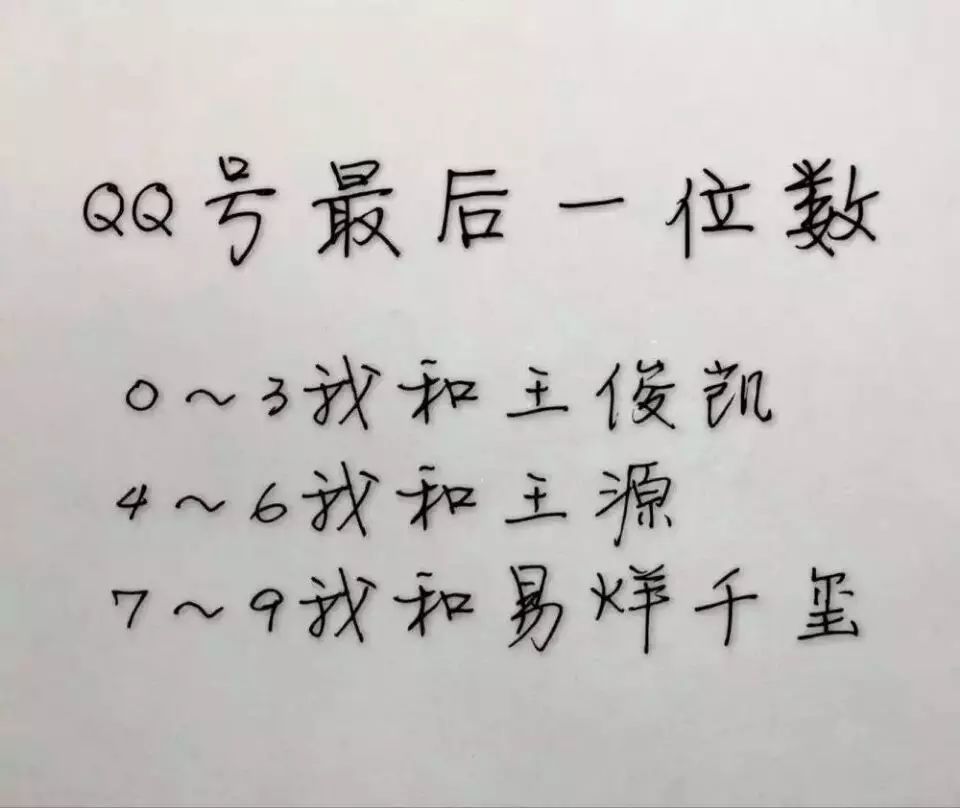 QQ号最后一位数
0~3我和王俊凯
4~6我和王源
7~9我和易烊千玺